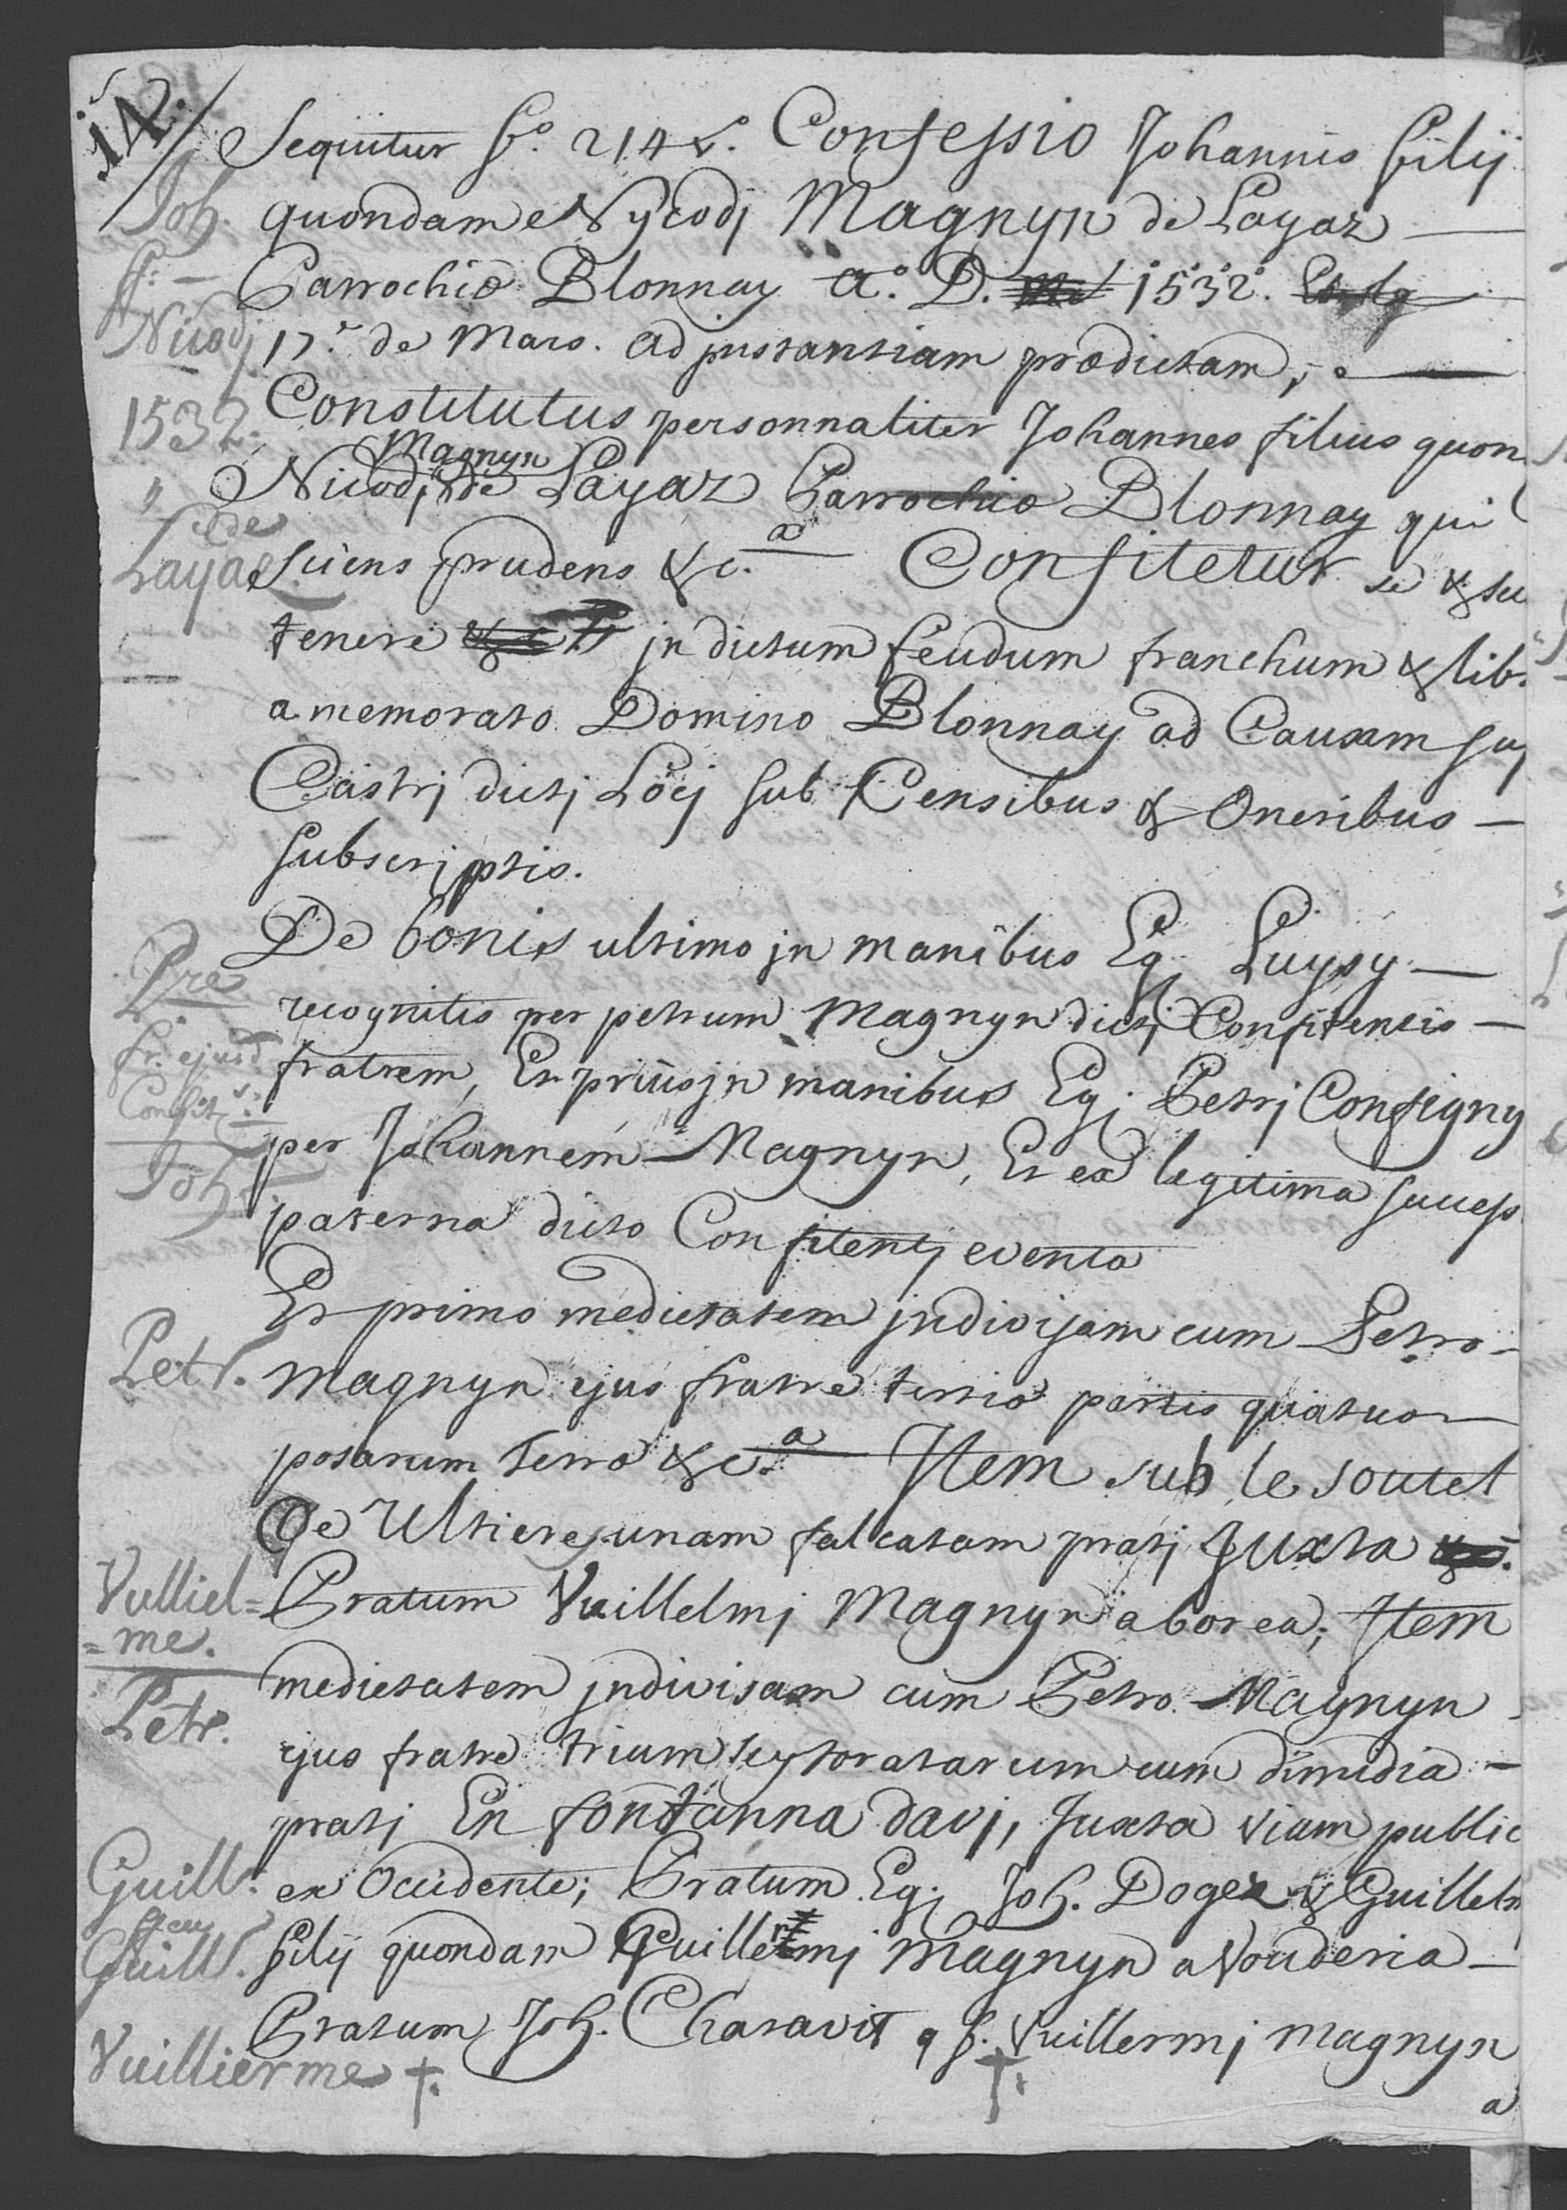 .14.
Sequitur fo. 214 vo. Confessio Johannis filij
Joh. quondam Nycodj Magnyn de Layaz —
ff. — Parrochiæ Blonnay Ao. D. 1532.
Nicodj 17e. de Mars. Ad jnstantiam prædictam, —
1532. Constitutus personnaliter Johannes filius quon
Magnyn
" Nicodj de Layaz Parrochiæ Blonnay qui
de
Layaz. sciens prudens &c.a Confitetur se & su
tenere jn dictum feudum franchum & lib.
a memorato Domino Blonnay ad Causam suj
Castrj dictj Locj sub Censibus & Oneribus —
subscriptis.
De bonis ultimo jn manibus Eg. Luysy —
Pre recognitis per petrum Magnyn dictj Confitentis —
fr. ejusd. fratrem, Et prius jn manibus Egj. Petrj Consigny
Confit.
Joh. per Johannem Magnyn, Et ex legitima success
paterna dicto Confitentj eventa
Et primo medietatem jndivisam cum Petro —
Petr. Magnyn ejus fratre tertiæ partis quatuor —
posarum terræ &c.a Item sub le soutet
De Ultiere unam falcatam pratj Juxta
Vulliel= Pratum Vuillelmj Magnyn a borea; Item
=me.
medietatem jndivisam cum Petro Magnyn
Petr.
ejus fratre trium seytoratarum cum dimidia —
pratj En fontanna davj, Juxta viam public
Guill. ex Occidente; Pratum Egj. Joh. Dogez & Guillelm
qu
Guill. filij quondam Guillermj Magnyn a Vouderia —
Pratum Joh. Charavit q f. Vuillermj Magnyn
Vuillierme †. †.
a